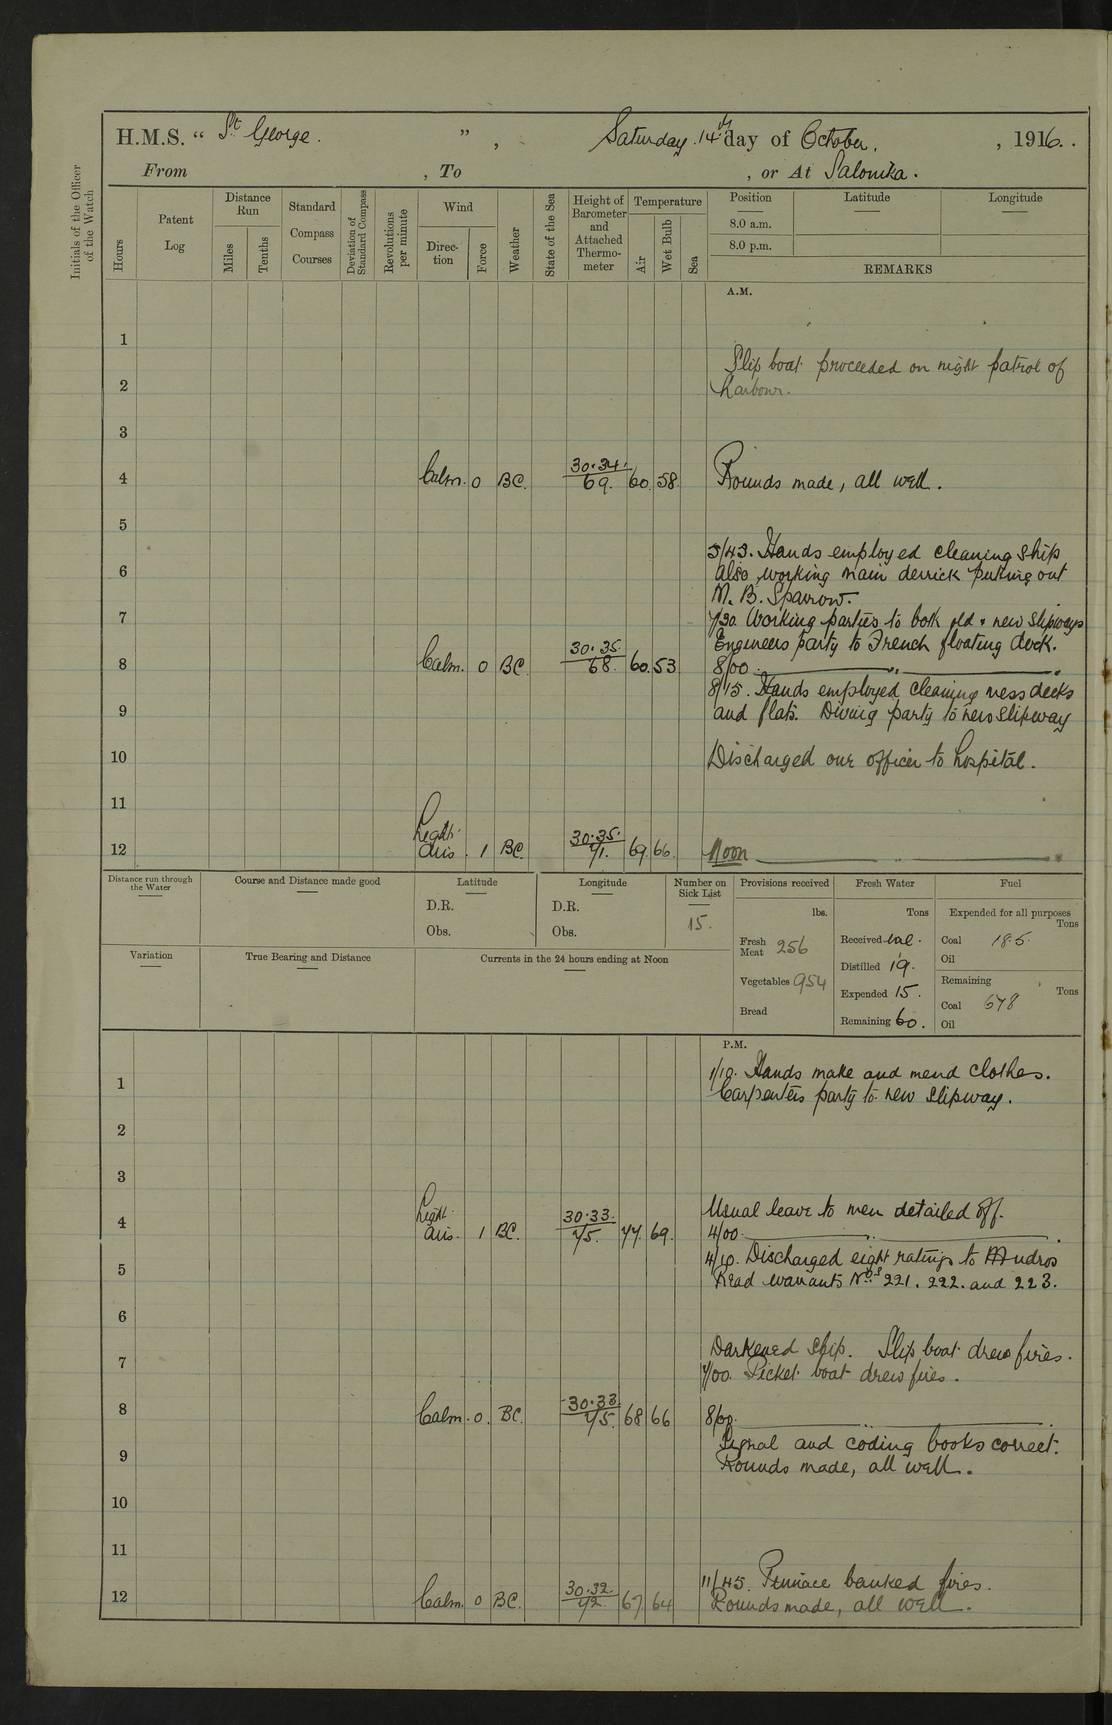 H.M.S. " St George. ", Saturday 14th day of October, , 1916.
From , To , or At Salonika.
Initials of the Officer of the Watch
Hours
Patent Log
Distance Run
Miles
Tenths
Standard Compass Courses
Deviation of Standard Compass
Revolutions per minute
Wind
Direction
Force
Weather
State of the Sea
Height of Barometer and Attached Thermometer
Temperature
Air
Wet Bulb
Sea
Position
8.0 a.m.
8.0 p.m.
Latitude
Longitude
REMARKS
A.M.
1
Slip boat proceeded on night patrol of
2 harbour.
3
4 Calm. 0 BC. 30.34. 69. 60. 58. Rounds made, all well.
5
5/43. Hands employed cleaning ship
6 also working main derrick putting out
M. B. Sparrow.
7 7/30 Working parties to both old & new Slipways
Engineers party to French floating dock.
8 Calm. 0 BC. 30.35. 68. 60. 53 8/00
8/15. Hands employed cleaning mess decks
9 and flats. Diving party to new Slipway
10 Discharged one officer to hospital.
11
12 Light airs. 1 BC. 30.35. 71. 69. 66. Noon
Distance run through the Water
Course and Distance made good
Latitude
D.R.
Obs.
Longitude
D.R.
Obs.
Number on Sick List
15.
Provisions received
lbs.
Fresh Meat 256
Vegetables 954
Bread
Fresh Water
Tons
Received
Distilled 19.
Expended 15.
Remaining 60.
Fuel
Expended for all purposes
Tons
Coal 18.5.
Oil
Remaining
Tons
Coal 678
Oil
Variation
True Bearing and Distance
Currents in the 24 hours ending at Noon
P.M.
1 1/10. Hands make and mend clothes.
Carpenters party to new Slipway.
2
3
Usual leave to men detailed off.
4 Light airs. 1 BC. 30.33. 75. 77. 69. 4/00
4/10. Discharged eight ratings to Mudros
5 Read warrants Nos 221. 222. and 223.
6
Darkened ship. Slip boat drew fires.
7 7/00. Picket boat drew fires.
8 Calm. 0. BC. 30.33 75. 68 66 8/00.
Signal and coding books correct.
9 Rounds made, all well.
10
11
11/45. Pinnace banked fires.
12 Calm. 0 BC. 30.32. 72. 67. 64 Rounds made, all well.